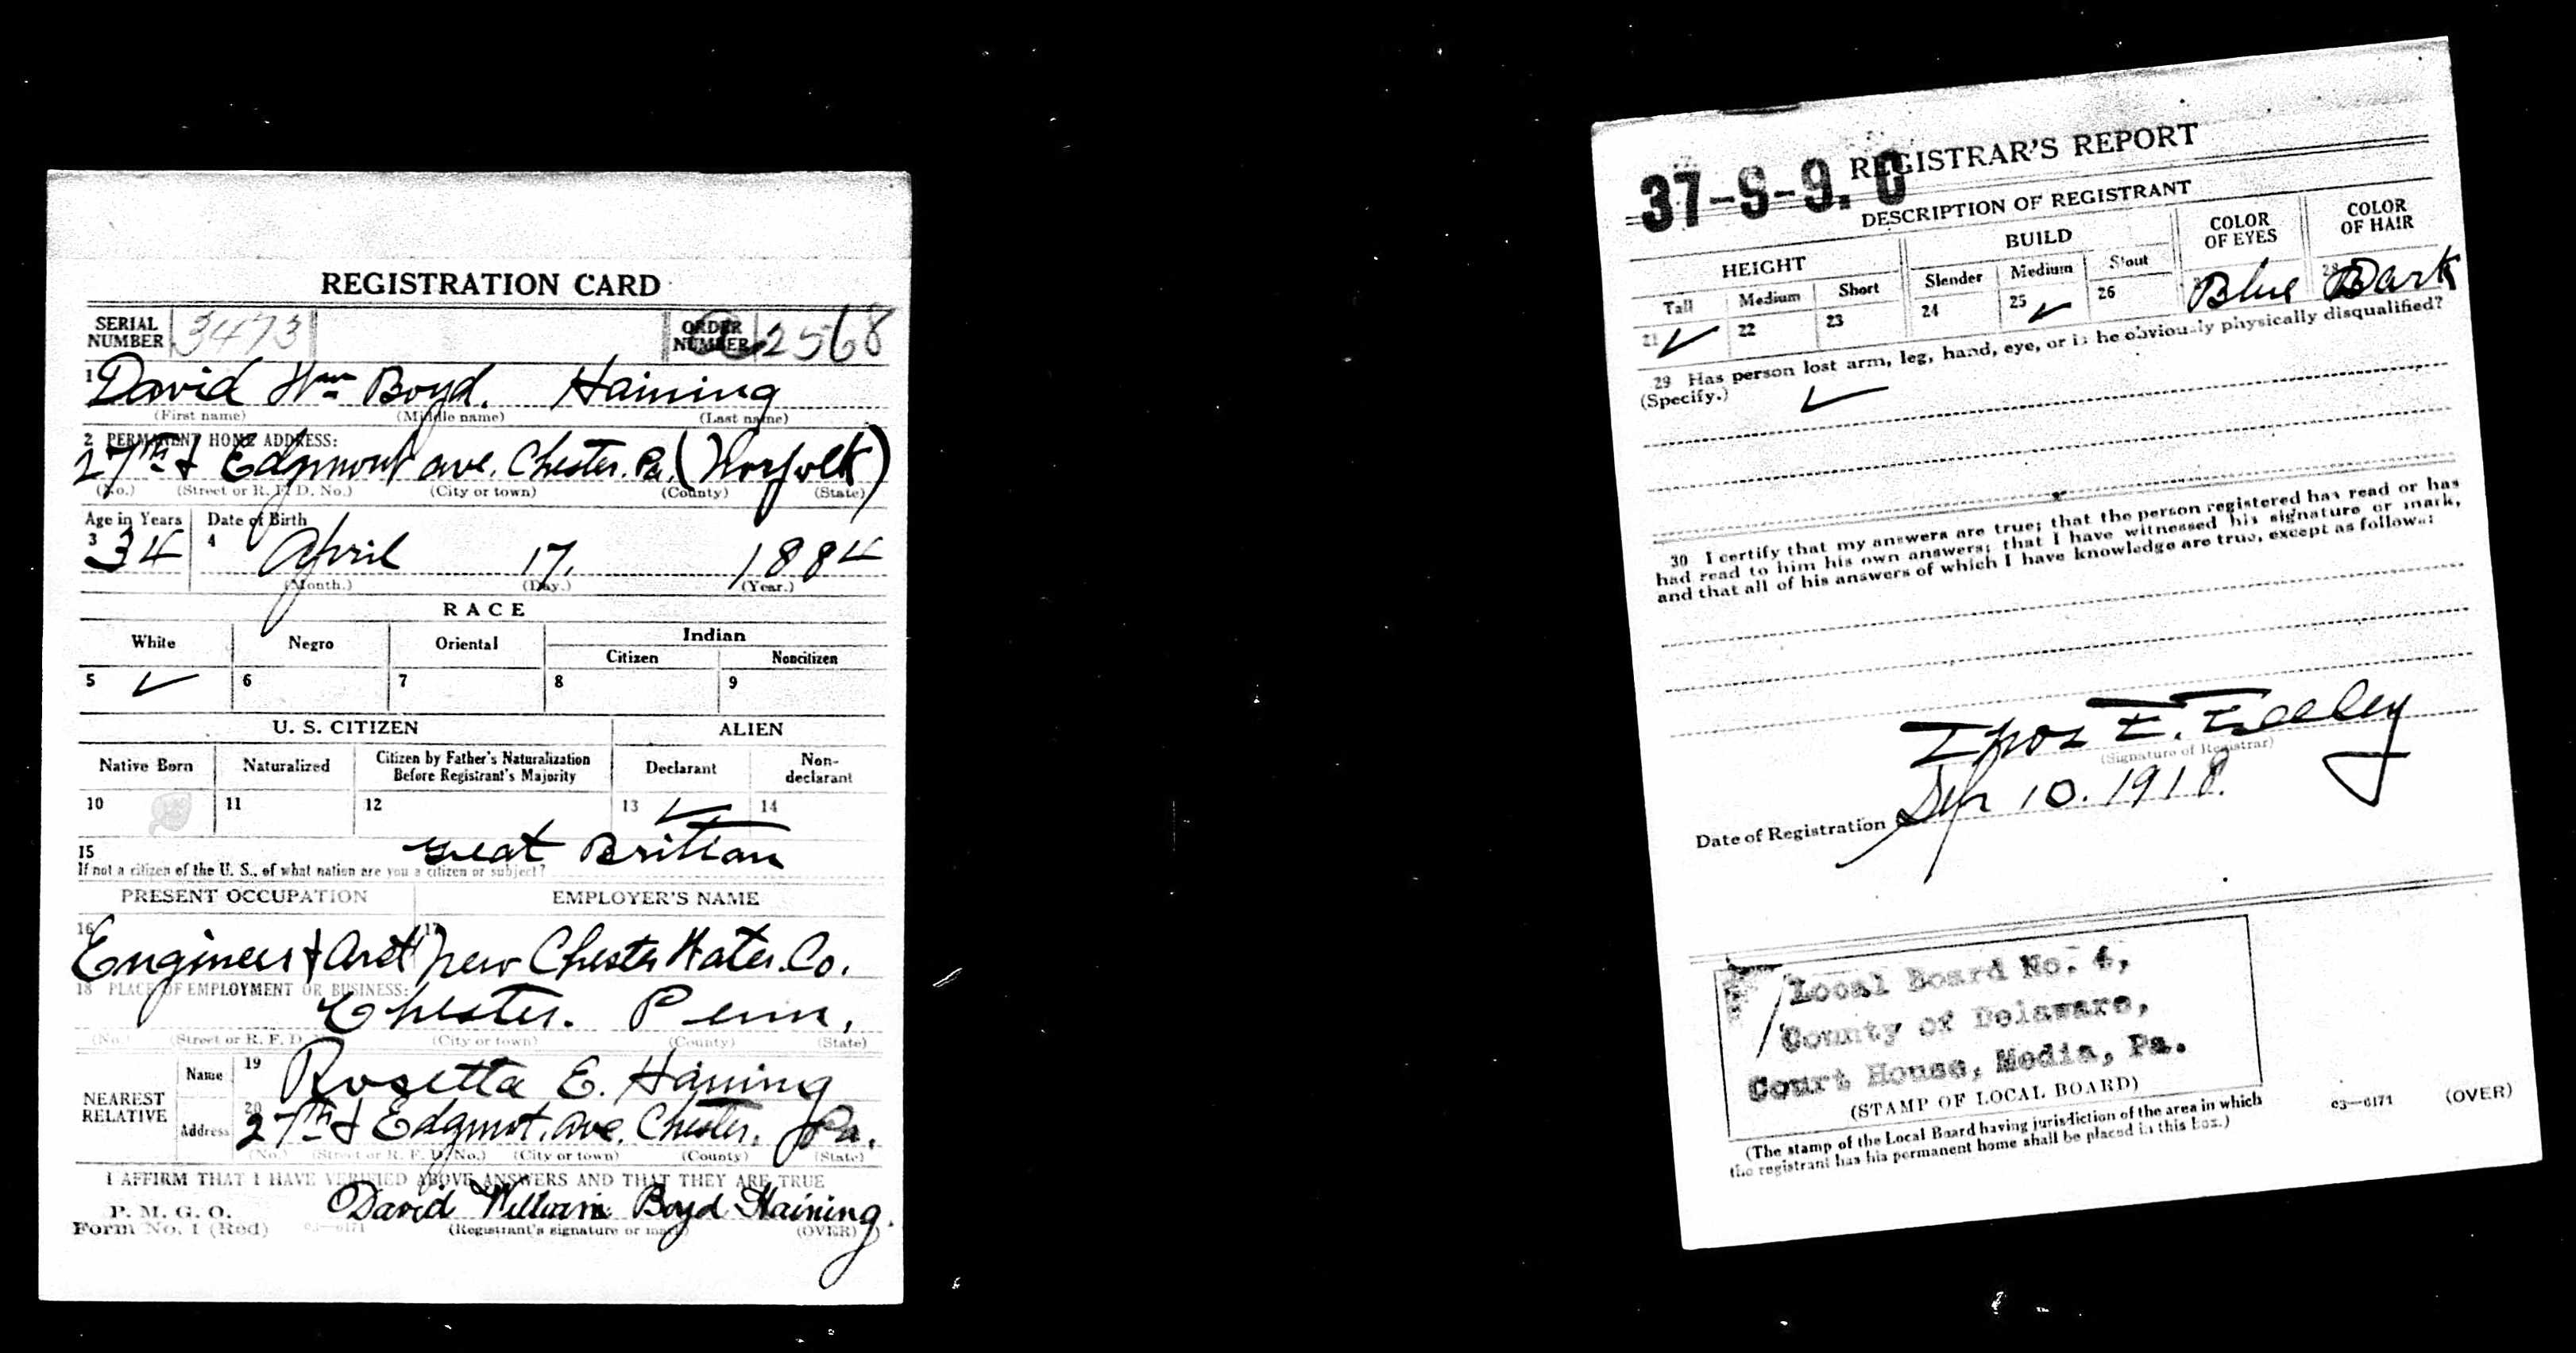 REGISTRATION CARD
SERIAL NUMBER 3473 ORDER NUMBER 2568
1 David Wm Boyd. Haining
(First name) (Middle name) (Last name)
2 PERMANENT HOME ADDRESS:
27th & Edgmont ave. Chester. Pa. (Norfolk)
(No.) (Street or R. F. D. No.) (City or town) (County) (State)
Age in Years Date of Birth
3 34 4 April 17, 1884
(Month.) (Day.) (Year.)
RACE
White Negro Oriental Indian
Citizen Noncitizen
5 ✓ 6 7 8 9
U. S. CITIZEN ALIEN
Native Born Naturalized Citizen by Father's Naturalization Before Registrant's Majority Declarant Non-declarant
10 11 12 13 ✓ 14
15 Great Britian
If not a citizen of the U. S., of what nation are you a citizen or subject?
PRESENT OCCUPATION EMPLOYER'S NAME
16 Engineer & 17 New Chester Water. Co.
18 PLACE OF EMPLOYMENT OR BUSINESS:
Chester. Penn,
(No.) (Street or R. F. D. (City or town) (County) (State)
NEAREST RELATIVE
Name 19 Rosetta E. Haining
Address 20 27th & Edgmot. ave. Chester. Pa.
(No.) (Street or R. F. D. No.) (City or town) (County) (State)
I AFFIRM THAT I HAVE VERIFIED ABOVE ANSWERS AND THAT THEY ARE TRUE
P. M. G. O.
Form No. 1 (Red) 03—6171 David William Boyd Haining.
(Registrant's signature or mark) (OVER)
REGISTRAR'S REPORT
37-9-9. C
DESCRIPTION OF REGISTRANT
HEIGHT BUILD COLOR OF EYES COLOR OF HAIR
Tall Medium Short Slender Medium Stout
21 ✓ 22 23 24 25 ✓ 26 Blue 28 Dark
29 Has person lost arm, leg, hand, eye, or is he obviously physically disqualified?
(Specify.) ✓
30 I certify that my answers are true; that the person registered has read or has
had read to him his own answers; that I have witnessed his signature or mark,
and that all of his answers of which I have knowledge are true, except as follows:
Thos E.
(Signature of Registrar)
Date of Registration Sep 10. 1918.
Local Board No. 4,
County of Delaware,
Court House, Media, Pa.
(STAMP OF LOCAL BOARD)
(The stamp of the Local Board having jurisdiction of the area in which
the registrant has his permanent home shall be placed in this box.)
03—6171 (OVER)